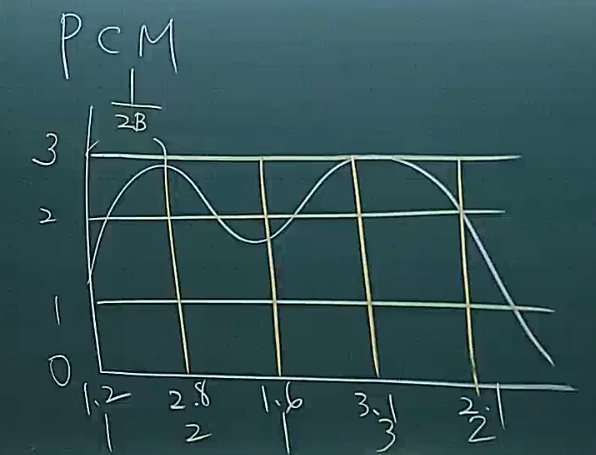 PCM
1
2B
3
2
1
0
1.2 2.8 1.6 3.1 2.1
1 2 1 3 2